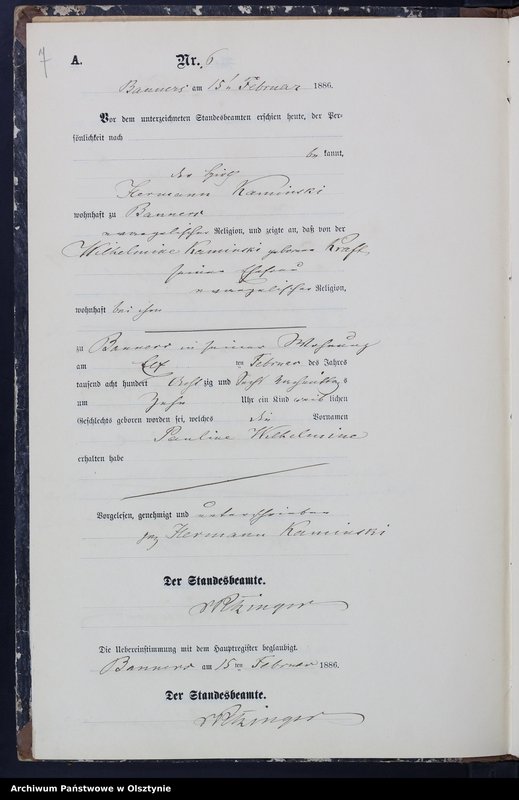 7
A. Nr. 6
Banners am 15t Februar 1886.
Vor dem unterzeichneten Standesbeamten erschien heute, der Per-
sönlichkeit nach
be kannt,
der
Hermann Kaminski
wohnhaft zu Banners
evangelischer Religion, und zeigte an, daß von der
Wilhelmine Kaminski geborene Kraft,
seiner Ehefrau
evangelischer Religion,
wohnhaft bei ihm
zu Banners in seiner Wohnung
am Elf ten Februar des Jahres
tausend acht hundert Acht zig und Sechs Vormittags
um Zehn Uhr ein Kind weib lichen
Geschlechts geboren worden sei, welches die Vornamen
Pauline Wilhelmine
erhalten habe
Vorgelesen, genehmigt und unterschrieben
gez Hermann Kaminski
Der Standesbeamte.
Die Uebereinstimmung mit dem Hauptregister beglaubigt.
Banners am 15 ten Februar 1886.
Der Standesbeamte.
Archiwum Państwowe w Olsztynie